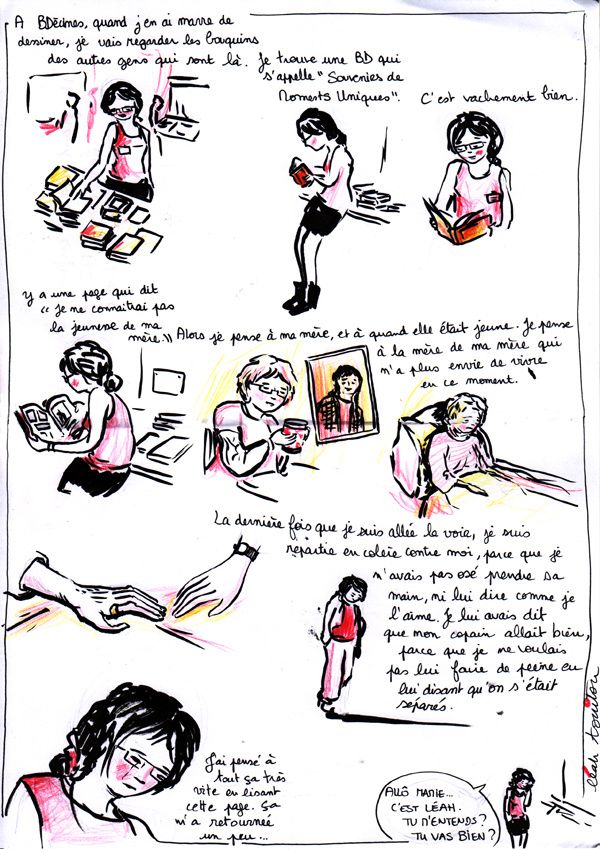 A BDécines, quand j'en ai marre de
dessiner, je vais regarder les bouquins
des autres gens qui sont là.
Je trouve une BD qui
s'appelle "Souvenirs de
Moments Uniques".
C'est vachement bien.
Y a une page qui dit
"Je ne connaîtrai pas
la jeunesse de ma
mère."
Alors je pense à ma mère, et à quand elle était jeune. Je pense
à la mère de ma mère qui
n'a plus envie de vivre
en ce moment.
La dernière fois que je suis allée la voir, je suis
repartie en colère contre moi, parce que je
n'avais pas osé prendre sa
main, ni lui dire comme je
l'aime. Je lui avais dit
que mon copain allait bien,
parce que je ne voulais
pas lui faire de peine en
lui disant qu'on s'était
séparés.
J'ai pensé à
tout ça très
vite en lisant
cette page. Ça
m'a retournée
un peu...
ALLÔ MAMIE...
C'EST LÉAH.
TU M'ENTENDS?
TU VAS BIEN?
léah touitou